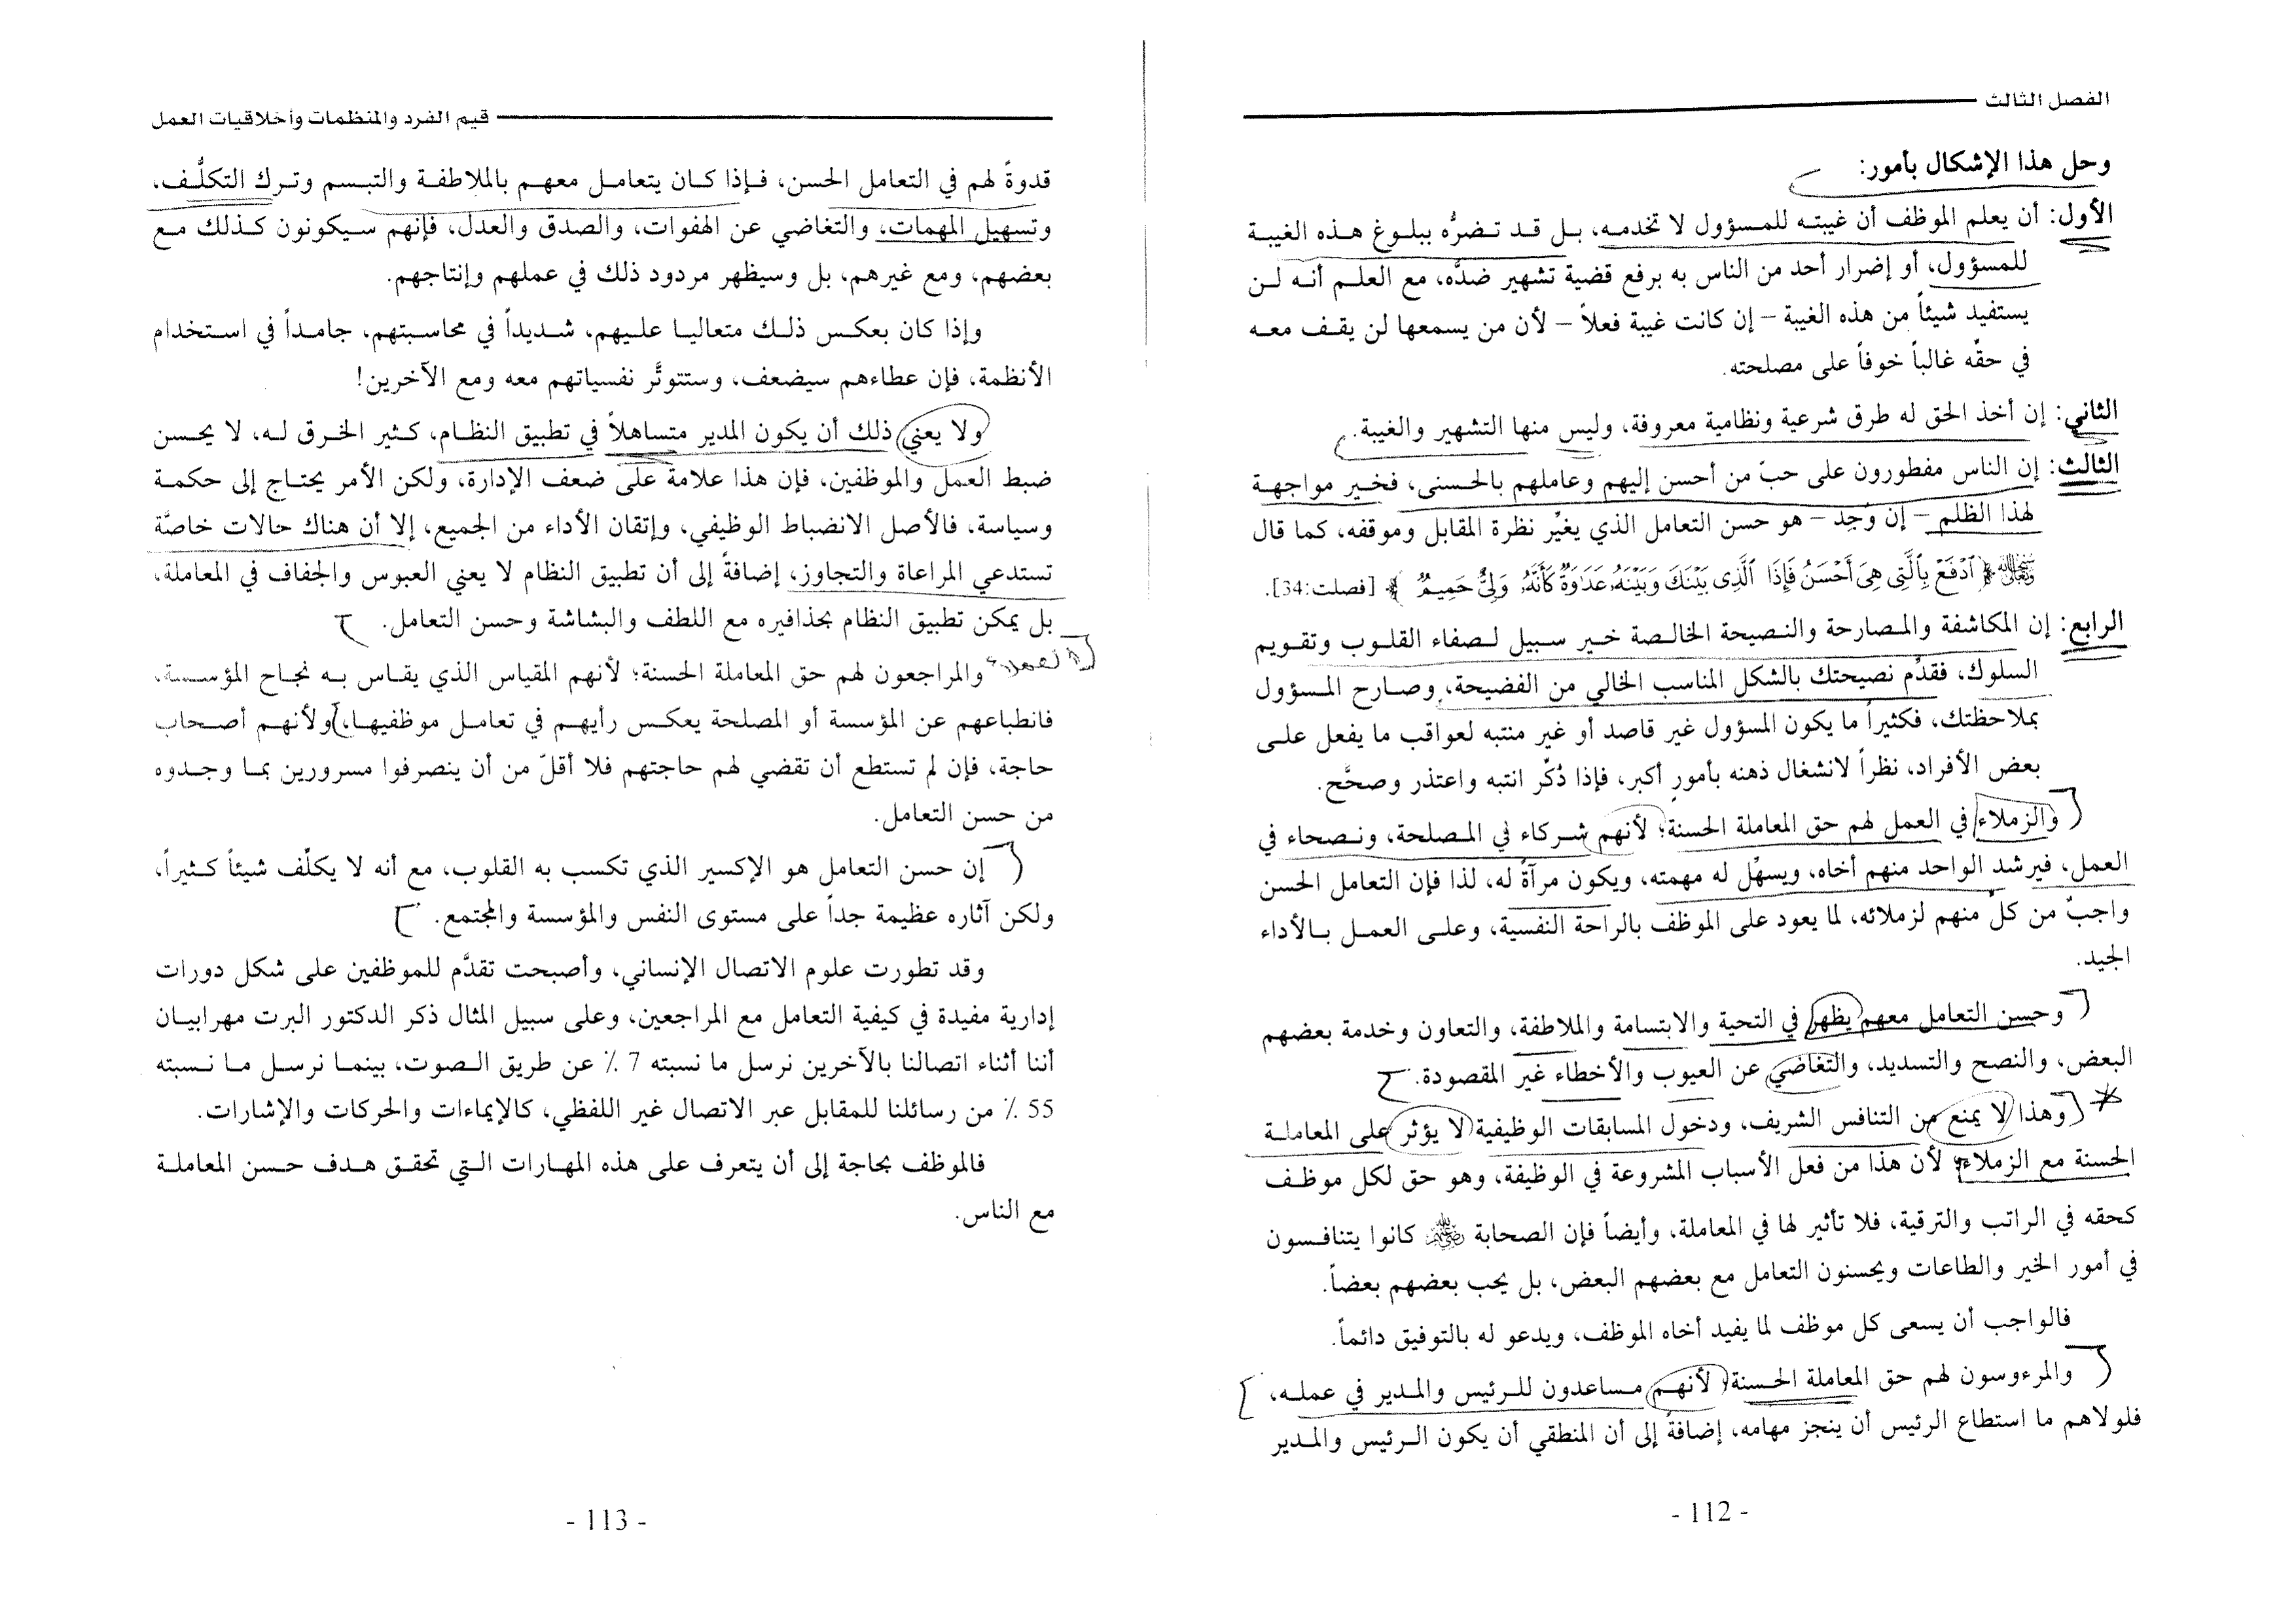 الفصل الثالث
وحل هذا الإشكال بأمور:
الأول: أن يعلم الموظف أن غيبته للمسؤول لا تخدمه، بل قد تضرُّه ببلوغ هذه الغيبة
للمسؤول، أو إضرار أحد من الناس به برفع قضية تشهير ضدَّه، مع العلم أنه لن
يستفيد شيئاً من هذه الغيبة – إن كانت غيبة فعلاً – لأن من يسمعها لن يقف معه
في حقّه غالباً خوفاً على مصلحته.
الثاني: إن أخذ الحق له طرق شرعية ونظامية معروفة، وليس منها التشهير والغيبة.
الثالث: إن الناس مفطورون على حبّ من أحسن إليهم وعاملهم بالحسنى، فخير مواجهة
لهذا الظلم – إن وُجِد – هو حسن التعامل الذي يغيِّر نظرة المقابل وموقفه، كما قال
﴿ ٱدْفَعْ بِٱلَّتِى هِىَ أَحْسَنُ فَإِذَا ٱلَّذِى بَيْنَكَ وَبَيْنَهُۥ عَدَٰوَةٌ كَأَنَّهُۥ وَلِىٌّ حَمِيمٌ ﴾ [فصلت:34].
الرابع: إن المكاشفة والمصارحة والنصيحة الخالصة خير سبيل لصفاء القلوب وتقويم
السلوك، فقدِّم نصيحتك بالشكل المناسب الخالي من الفضيحة، وصارح المسؤول
بملاحظتك، فكثيراً ما يكون المسؤول غير قاصد أو غير منتبه لعواقب ما يفعل على
بعض الأفراد، نظراً لانشغال ذهنه بأمورٍ أكبر، فإذا ذُكِّر انتبه واعتذر وصحَّح.
والزملاء في العمل لهم حق المعاملة الحسنة؛ لأنهم شركاء في المصلحة، ونصحاء في
العمل، فيرشد الواحد منهم أخاه، ويسهِّل له مهمته، ويكون مرآةً له، لذا فإن التعامل الحسن
واجبٌ من كلٍّ منهم لزملائه، لما يعود على الموظف بالراحة النفسية، وعلى العمل بالأداء
الجيد.
وحسن التعامل معهم يظهر في التحية والابتسامة والملاطفة، والتعاون وخدمة بعضهم
البعض، والنصح والتسديد، والتغاضي عن العيوب والأخطاء غير المقصودة.
وهذا لا يمنع من التنافس الشريف، ودخول المسابقات الوظيفية لا يؤثر على المعاملة
الحسنة مع الزملاء؛ لأن هذا من فعل الأسباب المشروعة في الوظيفة، وهو حق لكل موظف
كحقه في الراتب والترقية، فلا تأثير لها في المعاملة، وأيضاً فإن الصحابة ﷺ كانوا يتنافسون
في أمور الخير والطاعات ويحسنون التعامل مع بعضهم البعض، بل يحب بعضهم بعضاً.
فالواجب أن يسعى كل موظف لما يفيد أخاه الموظف، ويدعو له بالتوفيق دائماً.
والمرءوسون لهم حق المعاملة الحسنة؛ لأنهم مساعدون للرئيس والمدير في عمله،
فلولاهم ما استطاع الرئيس أن ينجز مهامه، إضافةً إلى أن المنطقي أن يكون الرئيس والمدير
- 112 -
قيم الفرد والمنظمات وأخلاقيات العمل
قدوةً لهم في التعامل الحسن، فإذا كان يتعامل معهم بالملاطفة والتبسم وترك التكلُّف،
وتسهيل المهمات، والتغاضي عن الهفوات، والصدق والعدل، فإنهم سيكونون كذلك مع
بعضهم، ومع غيرهم، بل وسيظهر مردود ذلك في عملهم وإنتاجهم.
وإذا كان بعكس ذلك متعاليا عليهم، شديداً في محاسبتهم، جامداً في استخدام
الأنظمة، فإن عطاءهم سيضعف، وستتوتَّر نفسياتهم معه ومع الآخرين!
ولا يعني ذلك أن يكون المدير متساهلاً في تطبيق النظام، كثير الخرق له، لا يحسن
ضبط العمل والموظفين، فإن هذا علامة على ضعف الإدارة، ولكن الأمر يحتاج إلى حكمة
وسياسة، فالأصل الانضباط الوظيفي، وإتقان الأداء من الجميع، إلا أن هناك حالات خاصَّة
تستدعي المراعاة والتجاوز، إضافةً إلى أن تطبيق النظام لا يعني العبوس والجفاف في المعاملة،
بل يمكن تطبيق النظام بحذافيره مع اللطف والبشاشة وحسن التعامل.
العملاء
والمراجعون لهم حق المعاملة الحسنة؛ لأنهم المقياس الذي يقاس به نجاح المؤسسة،
فانطباعهم عن المؤسسة أو المصلحة يعكس رأيهم في تعامل موظفيها، ولأنهم أصحاب
حاجة، فإن لم تستطع أن تقضي لهم حاجتهم فلا أقلّ من أن ينصرفوا مسرورين بما وجدوه
من حسن التعامل.
إن حسن التعامل هو الإكسير الذي تكسب به القلوب، مع أنه لا يكلّف شيئاً كثيراً،
ولكن آثاره عظيمة جداً على مستوى النفس والمؤسسة والمجتمع.
وقد تطورت علوم الاتصال الإنساني، وأصبحت تقدَّم للموظفين على شكل دورات
إدارية مفيدة في كيفية التعامل مع المراجعين، وعلى سبيل المثال ذكر الدكتور البرت مهرابيان
أننا أثناء اتصالنا بالآخرين نرسل ما نسبته 7 ٪ عن طريق الصوت، بينما نرسل ما نسبته
55 ٪ من رسائلنا للمقابل عبر الاتصال غير اللفظي، كالإيماءات والحركات والإشارات.
فالموظف بحاجة إلى أن يتعرف على هذه المهارات التي تحقق هدف حسن المعاملة
مع الناس.
- 113 -